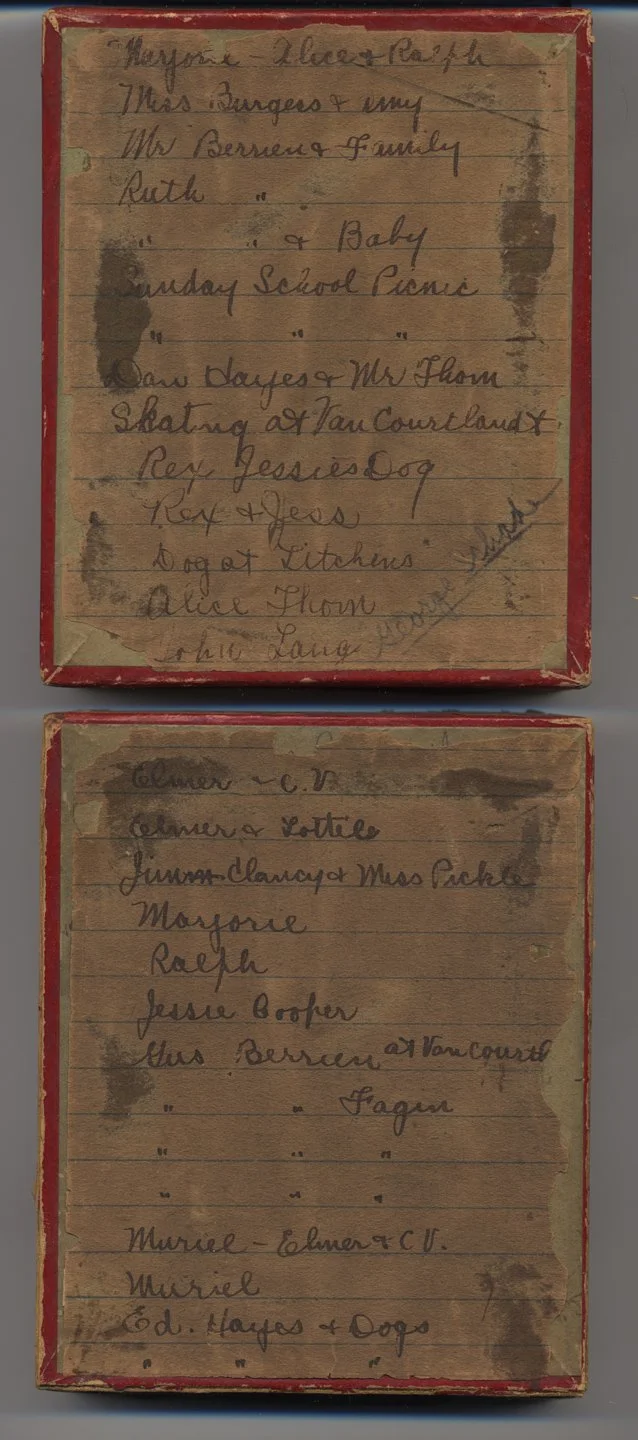 Marjorie - Alice & Ralph
Miss Burgess & Amy
Mr Berrien & Family
Ruth "
" " & Baby
Sunday School Picnic
" " "
Dan Hayes & Mr Thom
Skating at Van Courtlandt.
Rex Jessies Dog
Rex & Jess
Dog at Litchens
Alice Thom
John Lang
George
Elmer - C.V
Elmer & Lottile
Jimm Clancy & Miss Pickle
Marjorie
Ralph
Jessie Cooper
Miss Berrien at Van Courtl
" " Fagin
" " "
" " "
Muriel - Elmer & C V.
Muriel
Ed. Hayes & Dogs
" " "